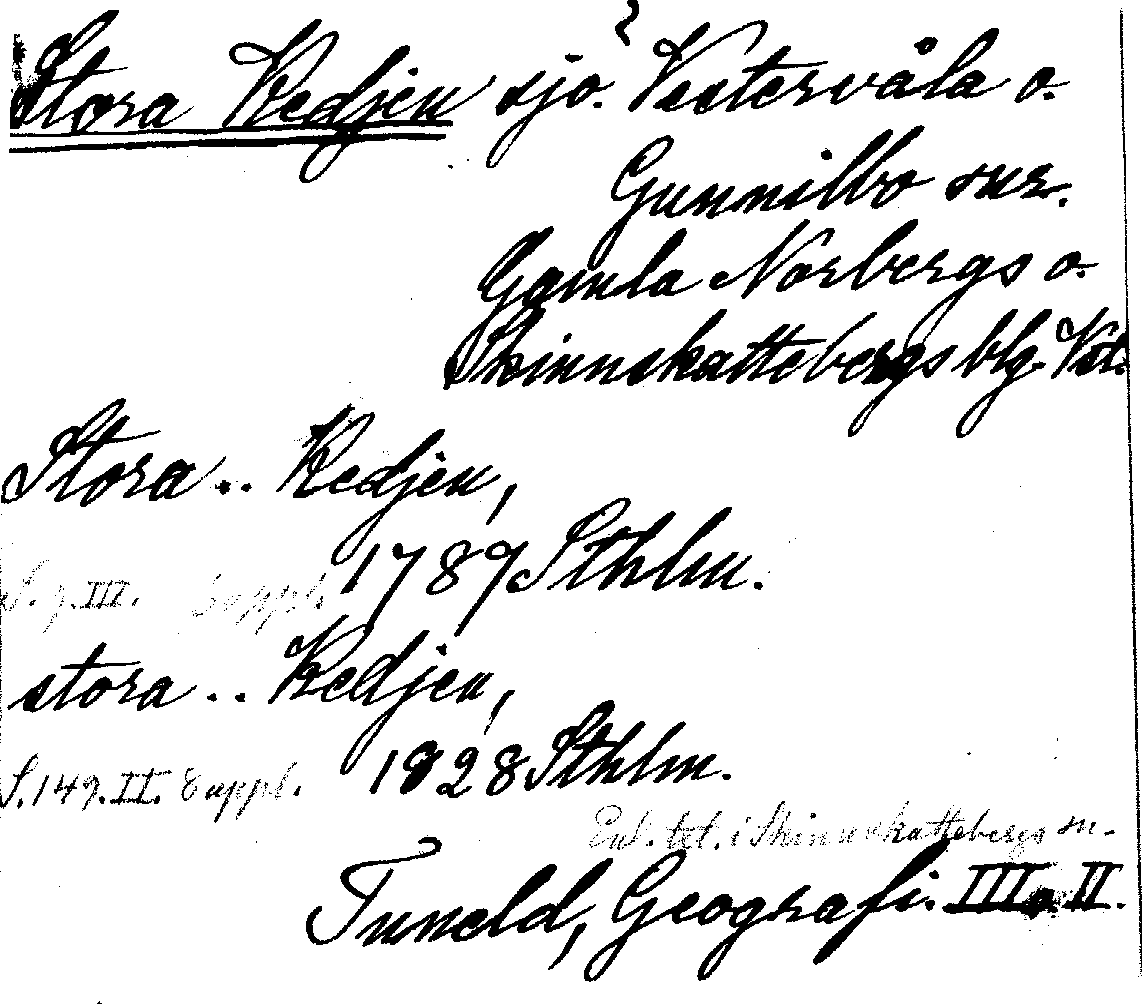 Stora Kedjen sjö. Vestervåla o.
Gunnilbo snr.
Gamla Norbergs o.
Skinnskattebergs blg. Vstm.
Stora .. Kedjen,
1789 Sthlm.
S. 7. III. Suppl.
stora .. Kedjen,
1828 Sthlm.
S. 149. II. Suppl.
Enl. tct. i Skinnskattebergs sn.
Tuneld, Geografi. III o. II.